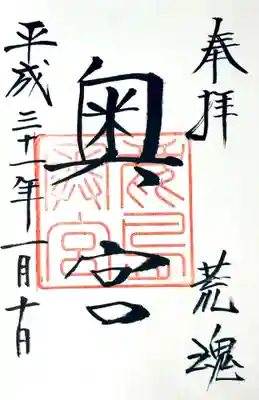 奉拝
荒魂
奥宮
平成三十一年一月十日